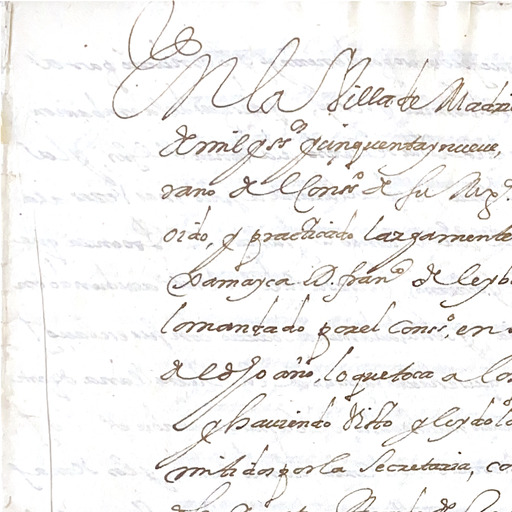 En la Villa de Madrid
de mil y ss.os y cinquenta y nueve,
rano de el Cons.o de su Mg.d
oido, y practicado largamente
Xamayca D. fran.co de leyb
lo mandado por el Cons.o, en
de el d.ho año, lo que toca a los
y haviendo visto y leydo lo
mitidos por la Secretaria, co